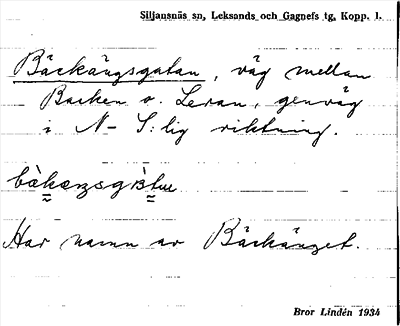 Siljansnäs sn, Leksands och Gagnefs tg, Kopp. l.
Bäckängsgatan, väg mellan
Backen o. Leran, genväg
i N-S:lig riktning.
Har namn av Bäckänget.
Bror Lindén 1934